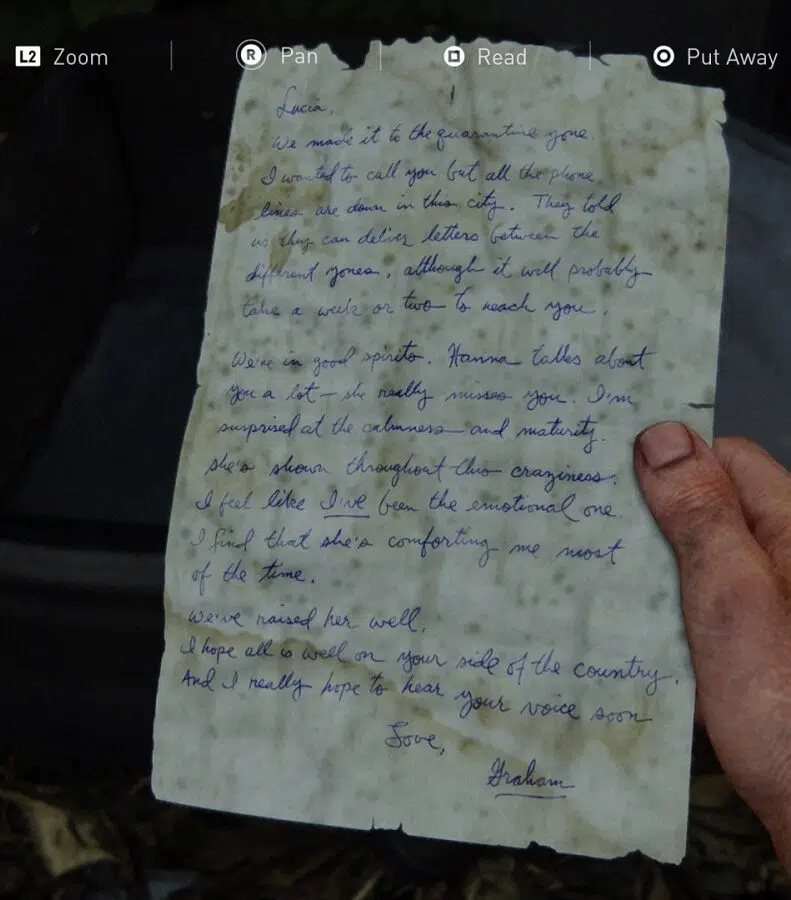 L2 Zoom R Pan Read Put Away
Lucia,
We made it to the quarantine zone.
I wanted to call you but all the phone
lines are down in this city. They told
us they can deliver letters between the
different zones, although it will probably
take a week or two to reach you.
We're in good spirits. Hanna talks about
you a lot — she really misses you. I'm
surprised at the calmness and maturity
she's shown throughout this craziness.
I feel like I've been the emotional one.
I find that she's comforting me most
of the time.
We've raised her well.
I hope all is well on your side of the country.
And I really hope to hear your voice soon
Love,
Graham